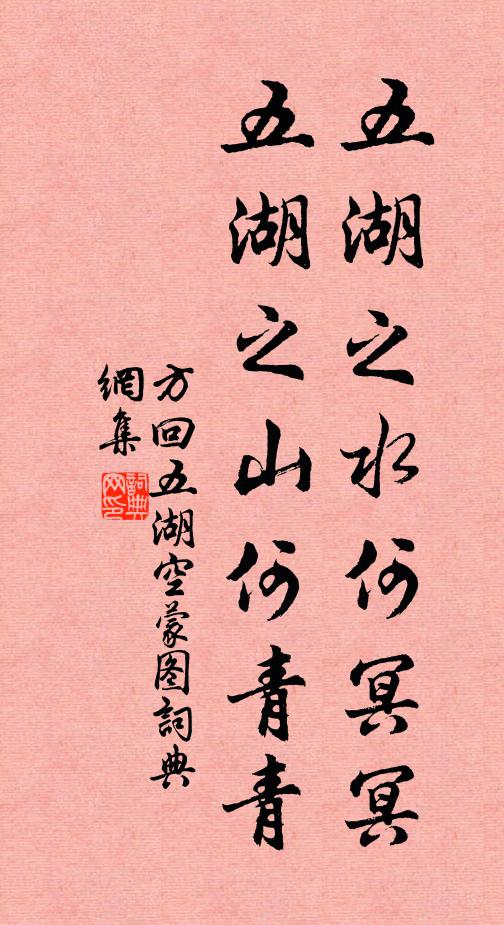 五湖之水何冥冥
五湖之山何青青
方回五湖空蒙图詞典
網集
詞典
网印